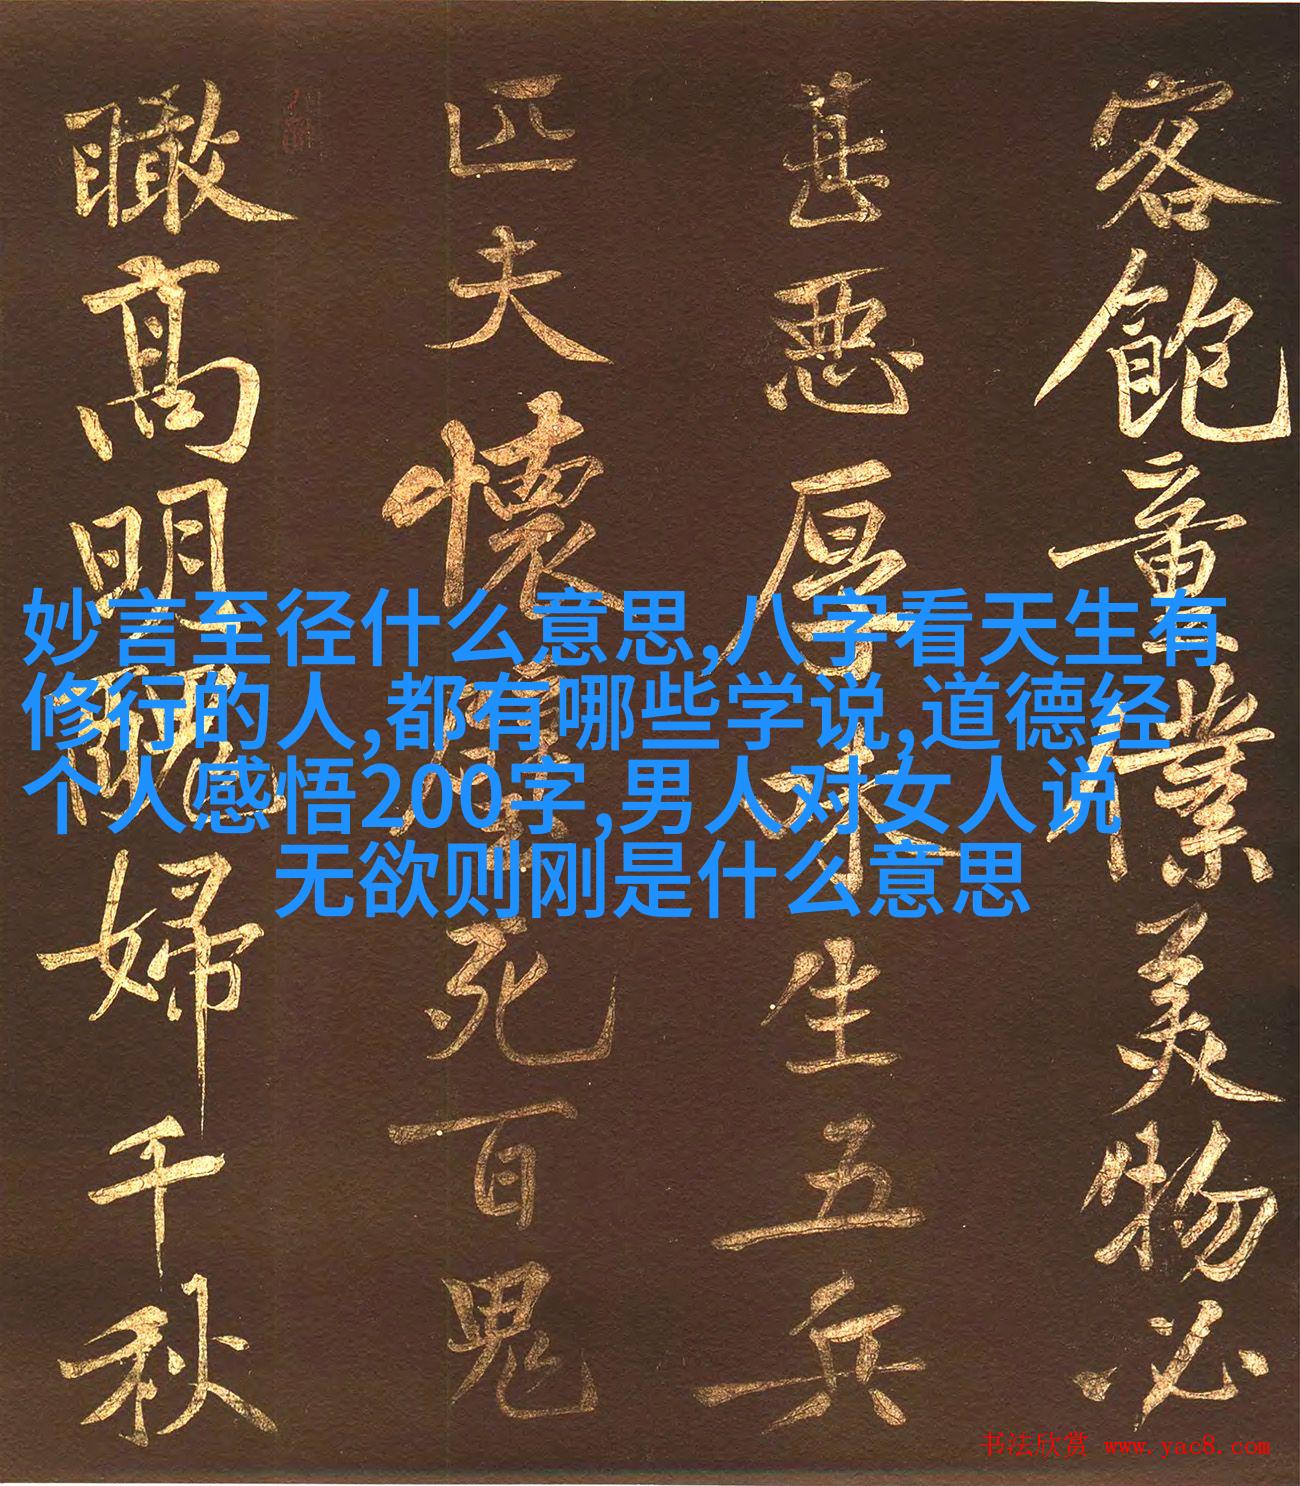 客飽童僕美物必
甚惡厚味生五兵
匹夫懷璧死百鬼
瞰高明醜婦千秋
妙言至径什么意思,八字看天生有
修行的人,都有哪些学说,道德经
个人感悟200字,男人对女人说
无欲则刚是什么意思
书法欣赏 www.yac8.com